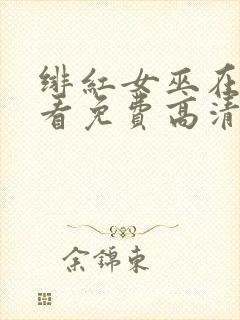 绯红女巫在
看免费高清
余锦东